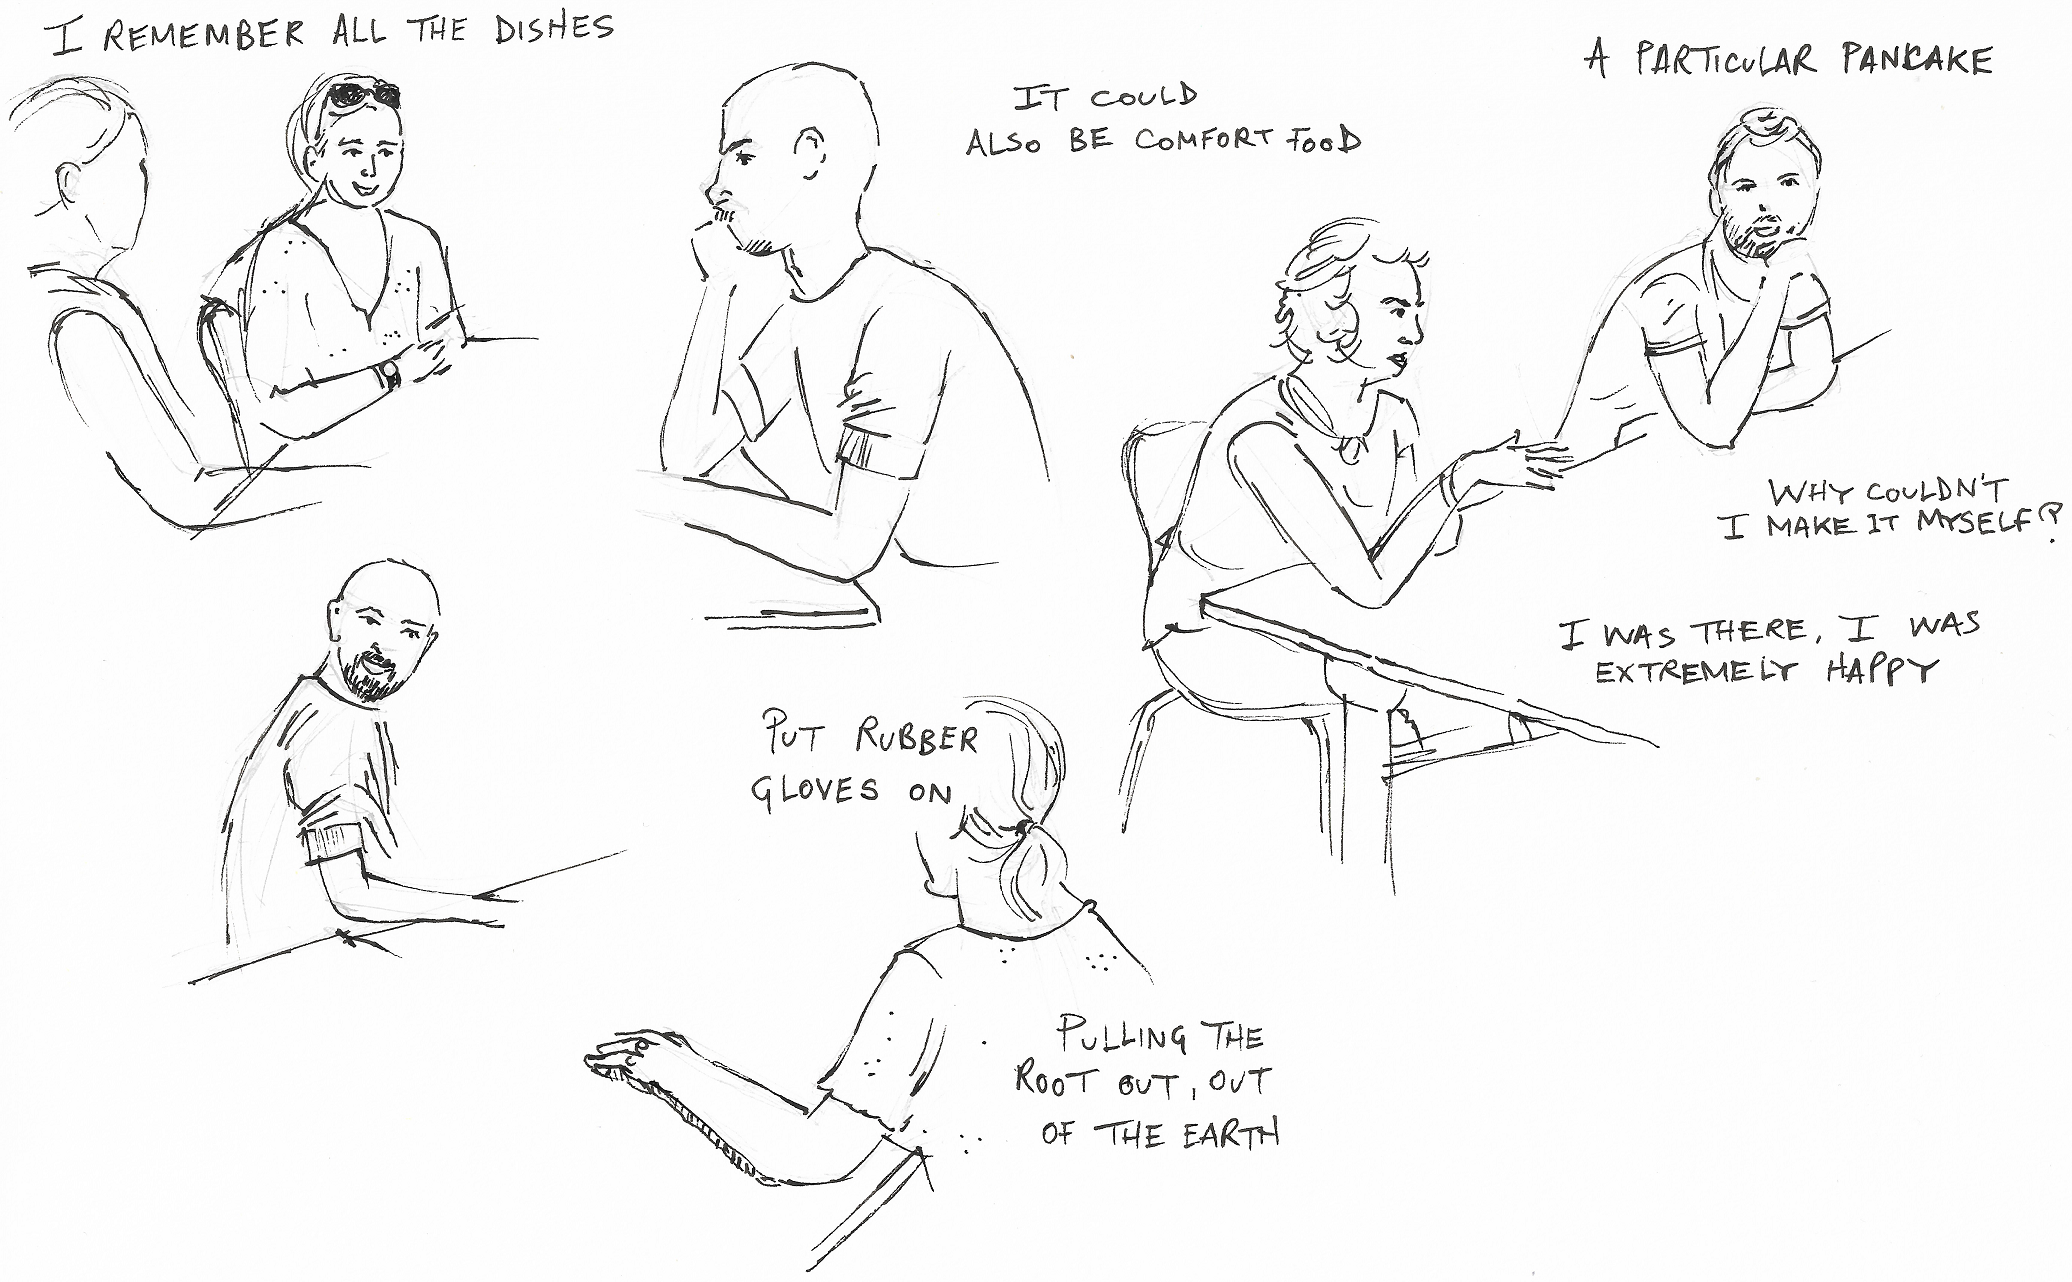 I REMEMBER ALL THE DISHES
IT COULD
ALSO BE COMFORT FOOD
A PARTICULAR PANCAKE
WHY COULDN'T
I MAKE IT MYSELF?
I WAS THERE, I WAS
EXTREMELY HAPPY
PUT RUBBER
GLOVES ON
PULLING THE
ROOT OUT, OUT
OF THE EARTH